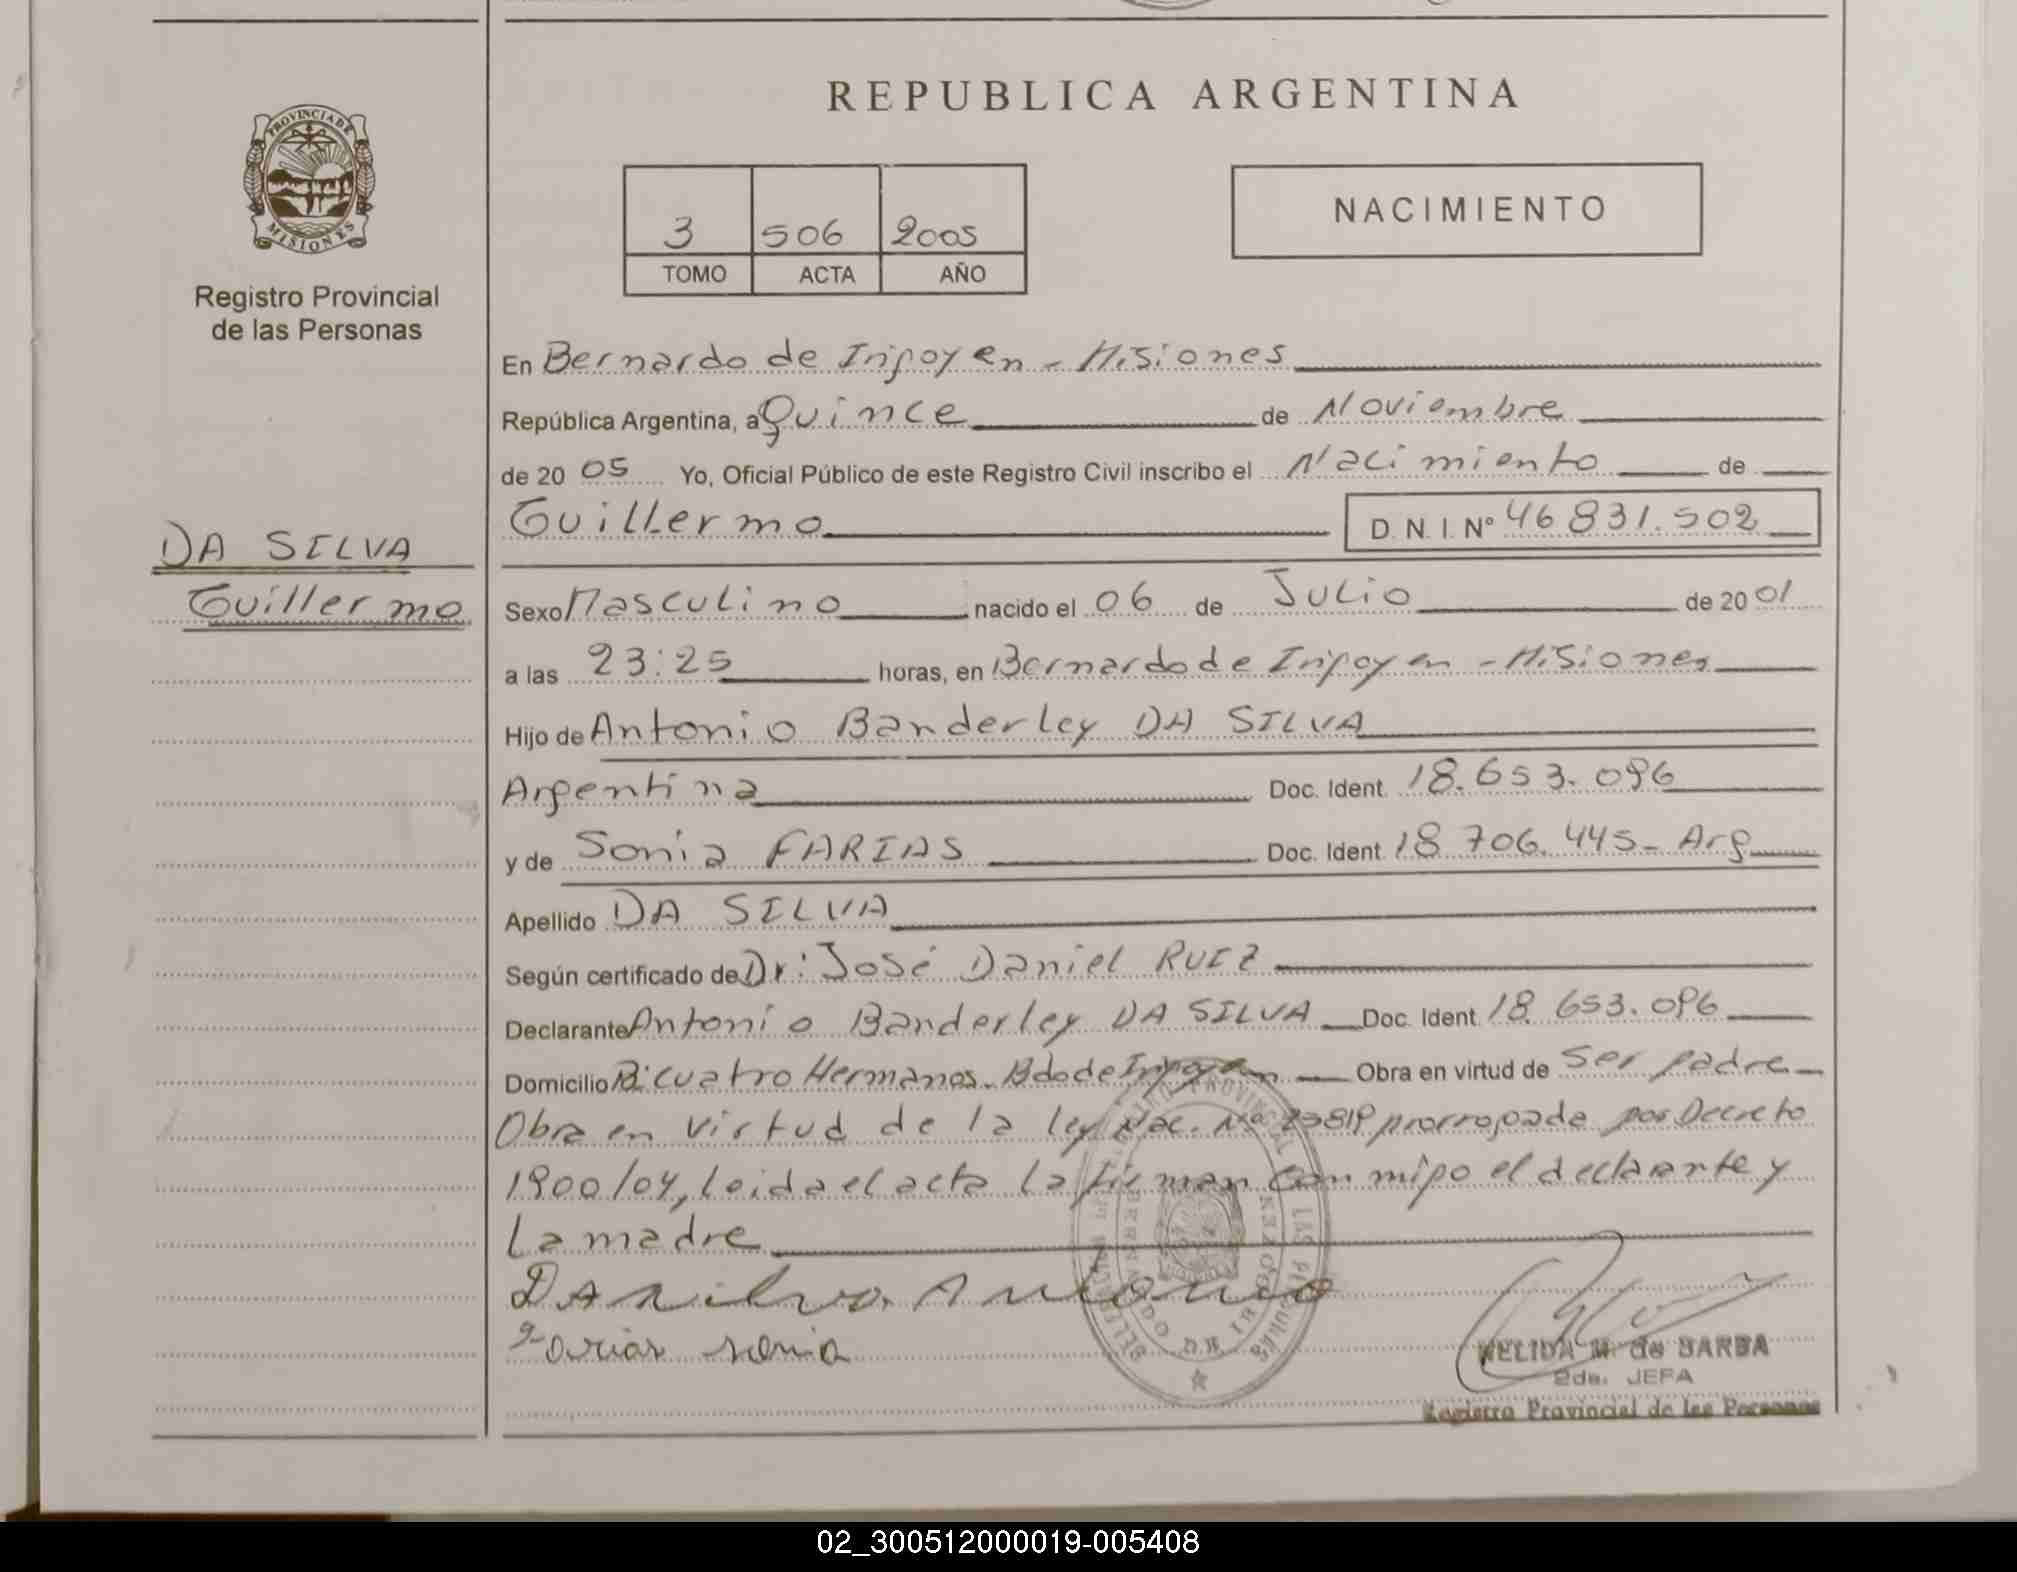 REPUBLICA ARGENTINA
PROVINCIA DE
MISIONES
Registro Provincial
de las Personas
3 506 2005
TOMO ACTA AÑO
NACIMIENTO
En Bernardo de Irigoyen - Misiones
República Argentina, a Quince de Noviembre
de 20 05 Yo, Oficial Público de este Registro Civil inscribo el Nacimiento de
Guillermo D. N. I. Nº 46 831.502
DA SILVA
Guillermo
Sexo Masculino nacido el 06 de Julio de 20 01
a las 23:25 horas, en Bernardo de Irigoyen - Misiones
Hijo de Antonio Banderley DA SILVA
Argentina Doc. Ident. 18.653.096
y de Sonia FARIAS Doc. Ident. 18 706.445- Arg
Apellido DA SILVA
Según certificado de Dr: José Daniel RUIZ
Declarante Antonio Banderley DA SILVA Doc. Ident. 18.653.096
Domicilio B: Cuatro Hermanos. Bdo de Irigoyen Obra en virtud de Ser padre
Obra en virtud de la ley Nac. Nº 23819 prorrogada por Decreto
1900/04, leida el acta la firman con migo el declarante y
La madre
DA silva Antonio
Farias sonia
NELIDA M. de BARBA
2da. JEFA
Registro Provincial de las Personas
02_300512000019-005408